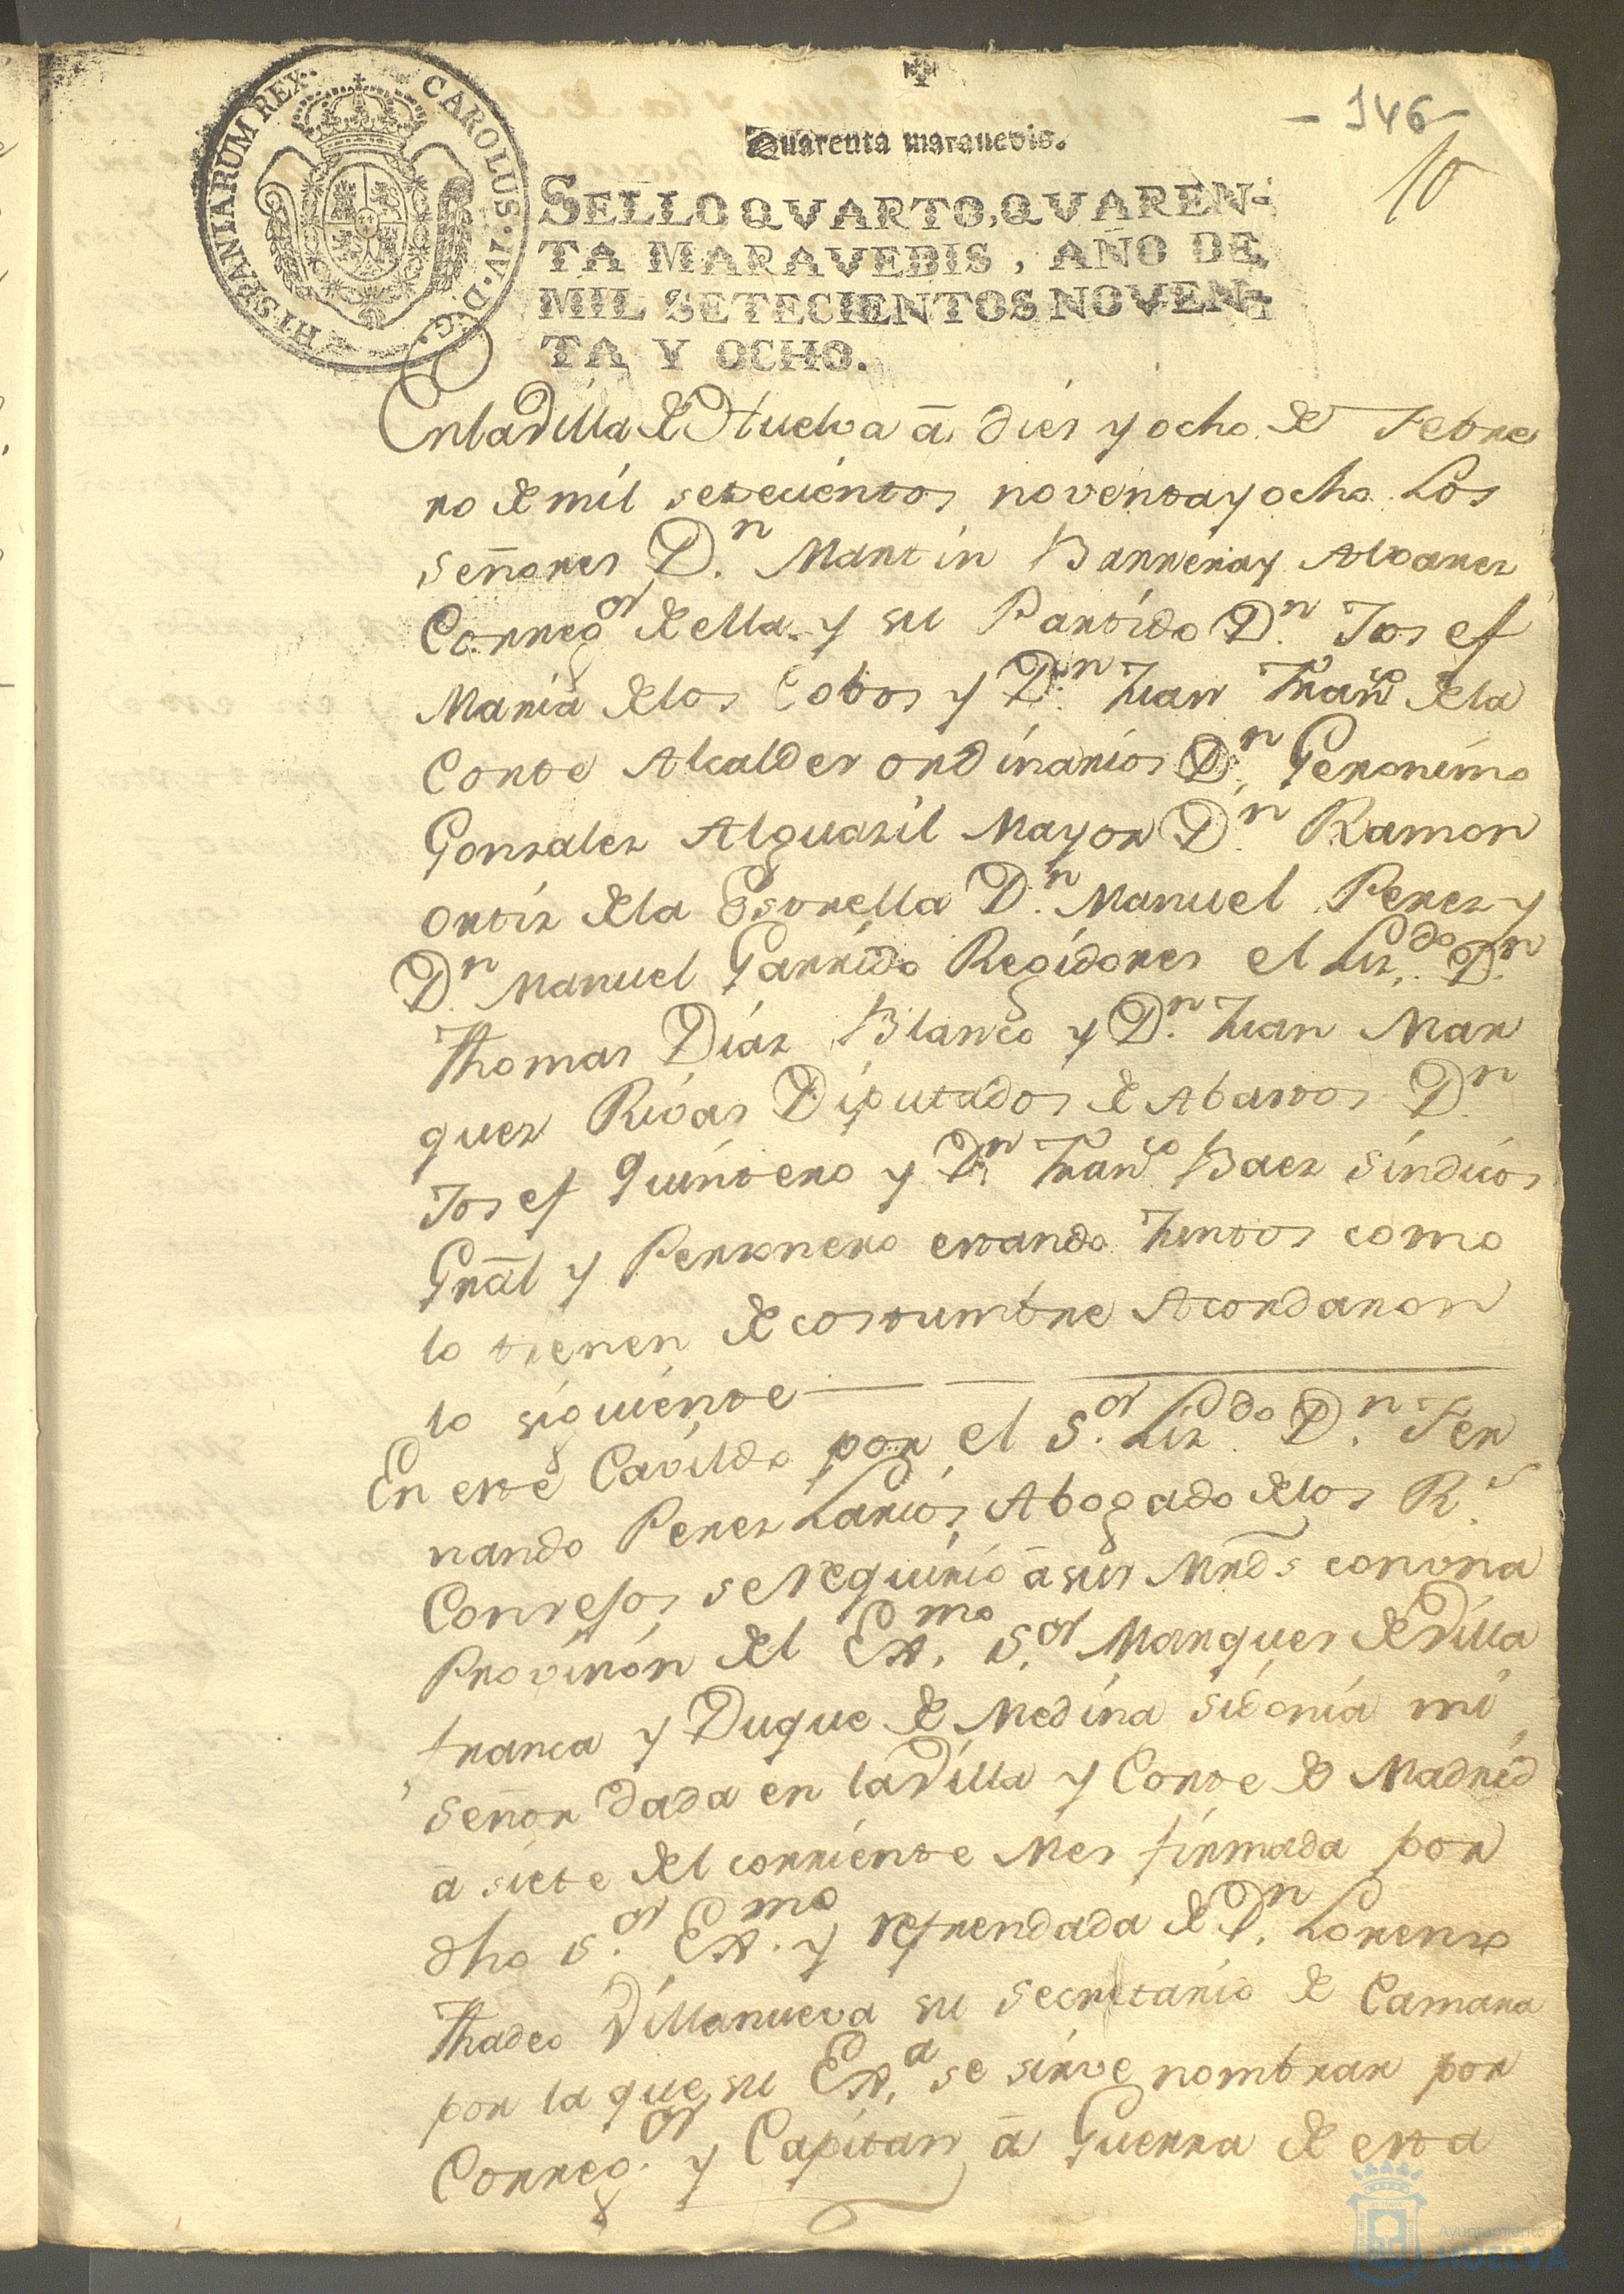 HISPANIARUM REX. CAROLUS. IV. D. G.
Quarenta marauedis.
- 146 -
10
SELLO QVARTO, QVAREN-
TA MARAVEDIS, AÑO DE
MIL SETECIENTOS NOVEN-
TA Y OCHO.
En la Villa de Huelva â dies y ocho de Febre
ro de mil setecientos noventa y ocho. Los
señores D.n Martin Barrera y Alvares
Correg.or de ella y su Partido D.n Josef
Maria de los Cobos y D.n Juan Franco de la
Corte Alcaldes ordinarios D.n Geronimo
Gonzales Alguazil Mayor D.n Ramon
Ortiz de la Estrella D.n Manuel Perez y
D.n Manuel Garrido Regidores el Liz.do D.n
Thomas Diaz Blanco y D.n Juan Mar
quez Rivas Diputados de Abastos D.n
Josef Quintero y D.n Franco Baez Sindicos
Grãl y Personero estando Juntos como
lo tienen de costumbre Acordaron
lo siguiente
En este Cavildo por el S.or Liz.do D.n Fer
nando Perez Larios Abogado de los R.s
Consejos se requirio â sus Mrds con una
Provision del Ex.mo S.or Marques de Villa
franca y Duque de Medina Sidonia mi
señor dada en la Villa y Corte de Madrid
â siete del corriente Mes firmada por
dho S.or Ex.mo y refrendada de D.n Lorenzo
Thadeo Villanueva su secretario de Camara
por la que su Ex.a se sirve nombrar por
Correg.or y Capitan â Guerra de esta
Ayuntamiento de
HUELVA